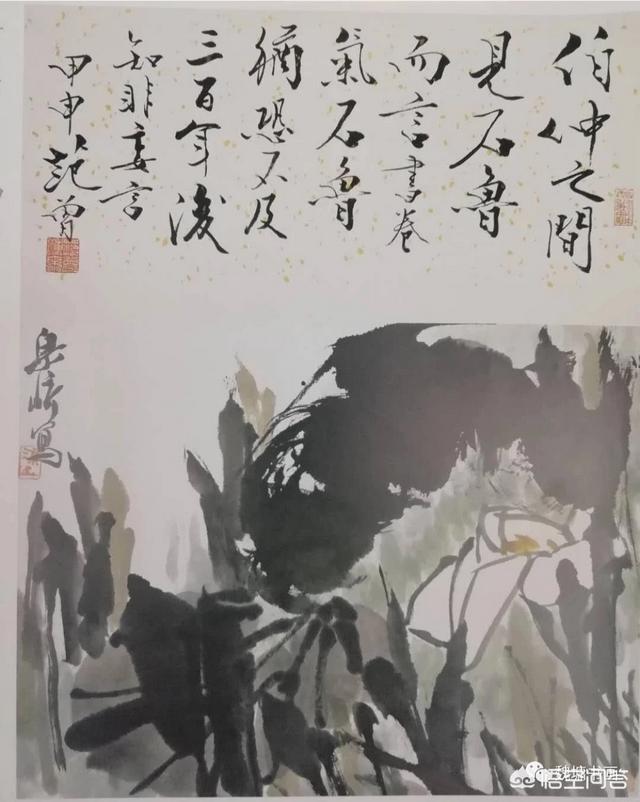 伯仲之間
見石魯
而言書卷
氣石魯
猶恐不及
三百年後
知非妄言
甲申范曾
寫
魏塘书画
悟空问答